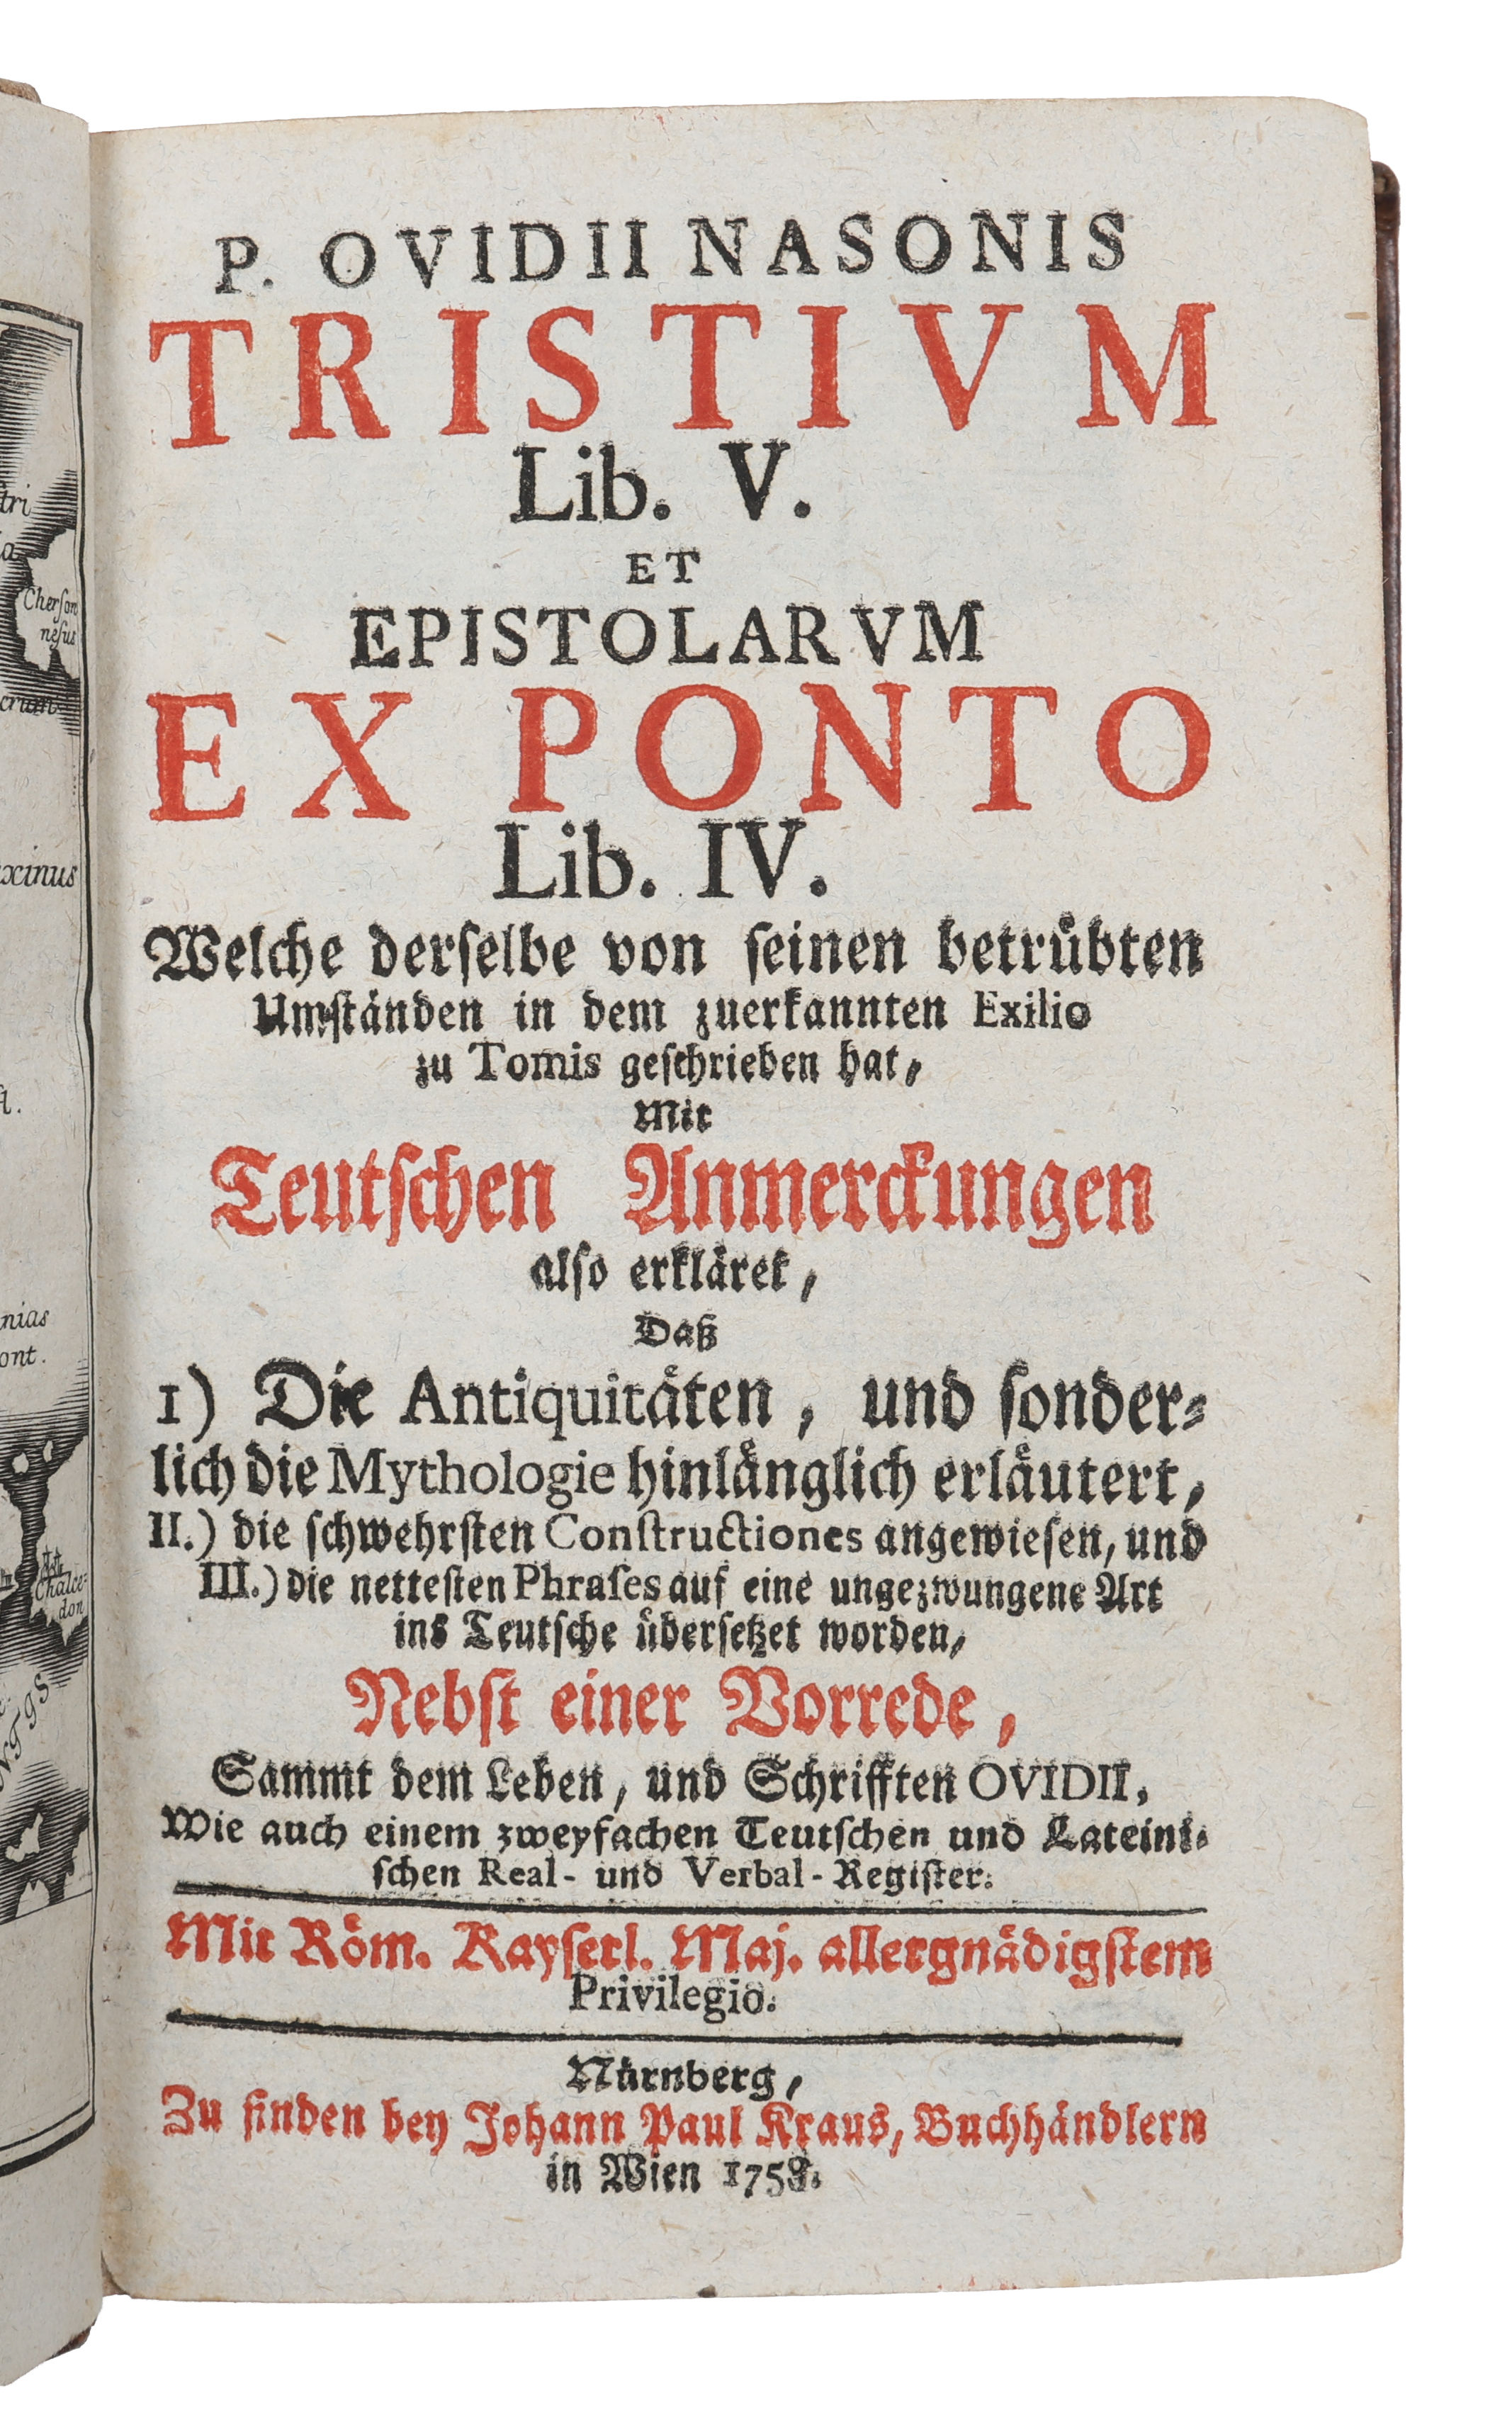 P. OVIDII NASONIS
TRISTIVM
Lib. V.
ET
EPISTOLARVM
EX PONTO
Lib. IV.
Welche derſelbe von ſeinen betrübten
Umſtänden in dem zuerkannten Exilio
zu Tomis geſchrieben hat,
Mit
Teutſchen Anmerckungen
alſo erkläret,
Daß
1) Die Antiquitäten, und ſonder-
lich die Mythologie hinlänglich erläutert,
II.) die ſchwehrſten Conſtructiones angewieſen, und
III.) die netteſten Phraſes auf eine ungezwungene Art
ins Teutſche überſetzet worden,
Nebſt einer Vorrede,
Sammt dem Leben, und Schrifften OVIDII,
Wie auch einem zweyfachen Teutſchen und Lateini-
ſchen Real- und Verbal-Regiſter.
Mit Röm. Kayſerl. Maj. allergnädigſtem
Privilegio.
Nürnberg,
Zu finden bey Johann Paul Kraus, Buchhändlern
in Wien 1758.
Cherſon
neſus
Chalce-
don